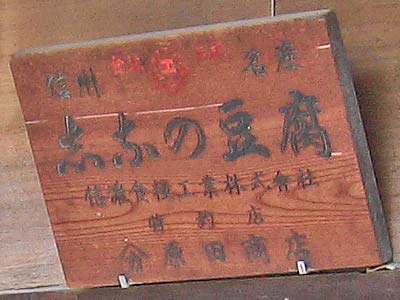 信州 名産
志なの豆腐
信濃食糧工業株式會社
特約店
原田商店